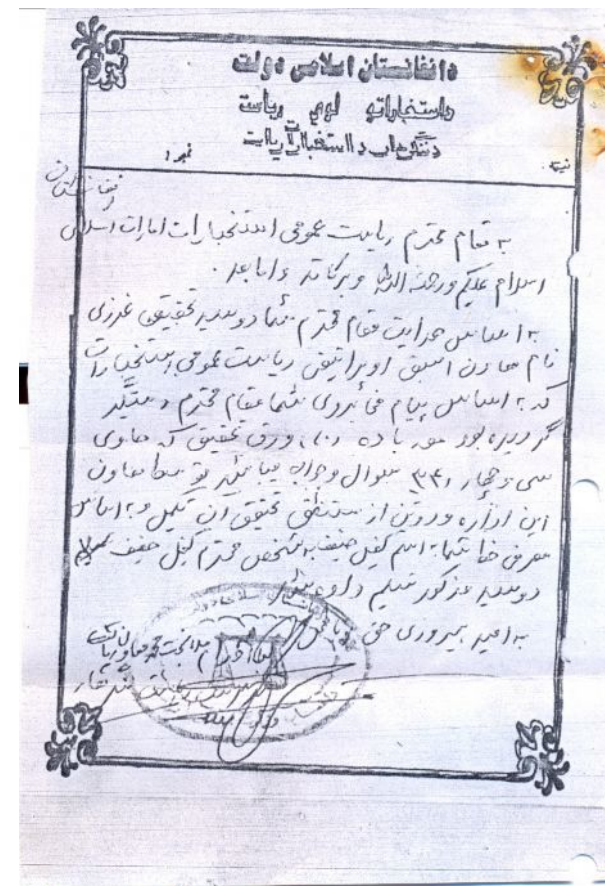 دافغانستان اسلامی دولت
داستخباراتو لوی ریاست
دننګرهار داستخباراتو ریاست
نمبر:
نیټه:
به مقام محترم ریاست عمومی استخبارات امارات اسلامی
افغانستان
اسلام علیکم ورحمة الله وبرکاته واما بعد.
به اساس هدایت مقام محترم شما دوسیه تحقیقی غرزی
نام معاون اسبق اوپراتیفی ریاست عمومی استخبارات
که به اساس پیام مخابروی شما مقام محترم دستگیر
گردیده بود مورد با ده (۱۰) ورق تحقیق که حاوی
سی و چهار (۳۴) سوال و جواب میباشد توسط معاون
این اداره و دو تن از مستنطق تحقیق آن تکمیل و به اساس
معرفی خط شما به اسم کفیل حنیف به شخص محترم کفیل حنیف
دوسیه مذکور تسلیم داده شد
به امید پیروزی حق